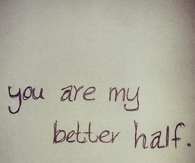 you are my
better half.